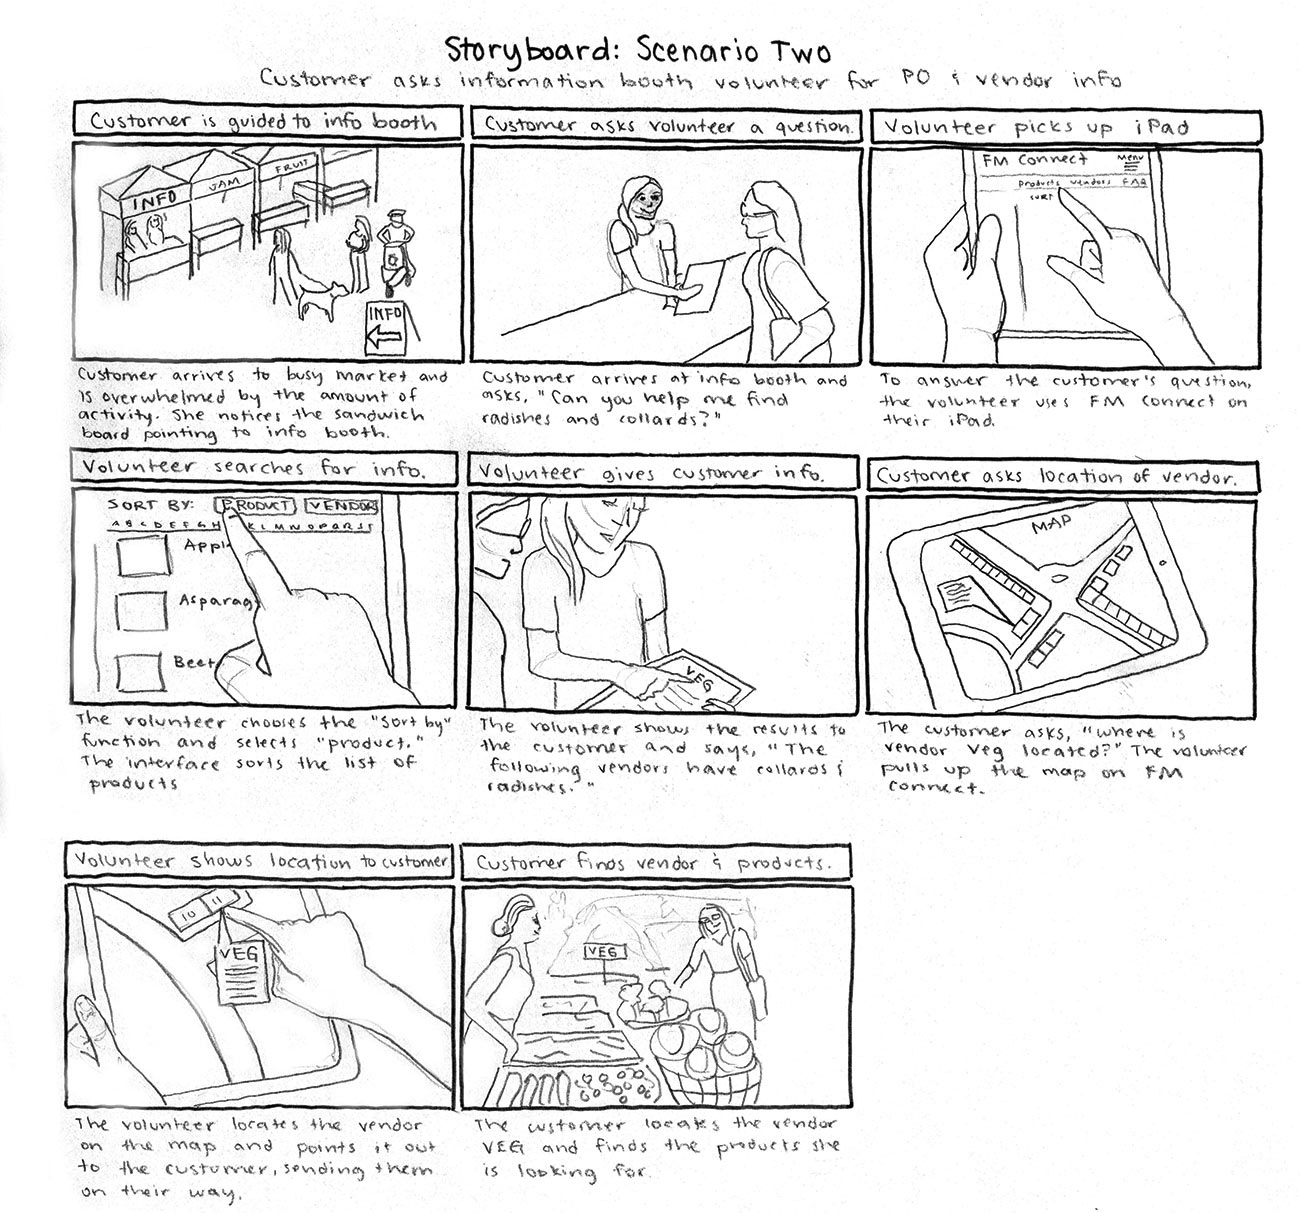 Storyboard: Scenario Two
Customer asks information booth volunteer for PO & vendor info
Customer is guided to info booth
INFO
JAM
FRUIT
INFO
Customer arrives to busy market and
is overwhelmed by the amount of
activity. She notices the sandwich
board pointing to info booth.
Customer asks volunteer a question.
Customer arrives at info booth and
asks, "Can you help me find
radishes and collards?"
Volunteer picks up iPad
FM Connect
Menu
Products Vendors FAQ
SORT
To answer the customer's question,
the volunteer uses FM Connect on
their iPad.
Volunteer searches for info.
SORT BY: PRODUCT VENDOR
A B C D E F G H K L M N O P Q R S T
Appl
Asparag
Beet
The volunteer chooses the "Sort by"
function and selects "product."
The interface sorts the list of
products
Volunteer gives customer info.
VEG
The volunteer shows the results to
the customer and says, "The
following vendors have collards &
radishes."
Customer asks location of vendor.
MAP
The customer asks, "where is
vendor Veg located?" The volunteer
pulls up the map on FM
Connect.
Volunteer shows location to customer
10 11
VEG
The volunteer locates the vendor
on the map and points it out
to the customer, sending them
on their way.
Customer finds vendor & products.
VEG
The customer locates the vendor
VEG and finds the products she
is looking for.